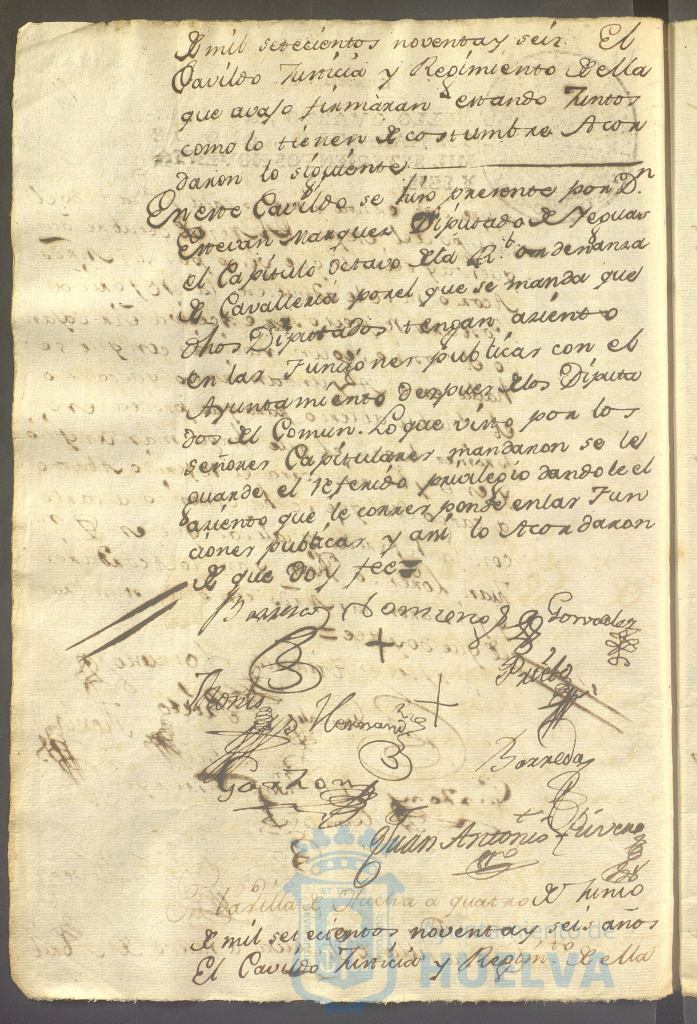 de mil setecientos noventa y seis. El
Cavildo Justicia y Regimiento de ella
que avajo firmaran estando Juntos
como lo tienen de costumbre Acor
daron lo siguiente
En este Cavildo se hizo presente por Dn
Estevan Marquez Diputado de Yeguas
el Capitulo Octavo de la Rl Ordenanza
de Cavalleria por el que se manda que
dhos Diputados tengan asiento
en las Funciones publicas con el
Ayuntamiento despues de los Diputa
dos del Comun. Lo que visto por los
señores Capitulares mandaron se le
guarde el referido privilegio dandole el
asiento que le corresponde en las Fun
ciones publicas y asi lo Acordaron
de que Doy fee=
Romero Gonzalez
Prieto
Hernandz
Barreda
Garzon
Juan Antonio Rivero
En la villa de Huelva a quatro de Junio
de mil setecientos noventa y seis años
El Cavildo Justicia y Regimto de ella
Ayuntamiento de
HUELVA